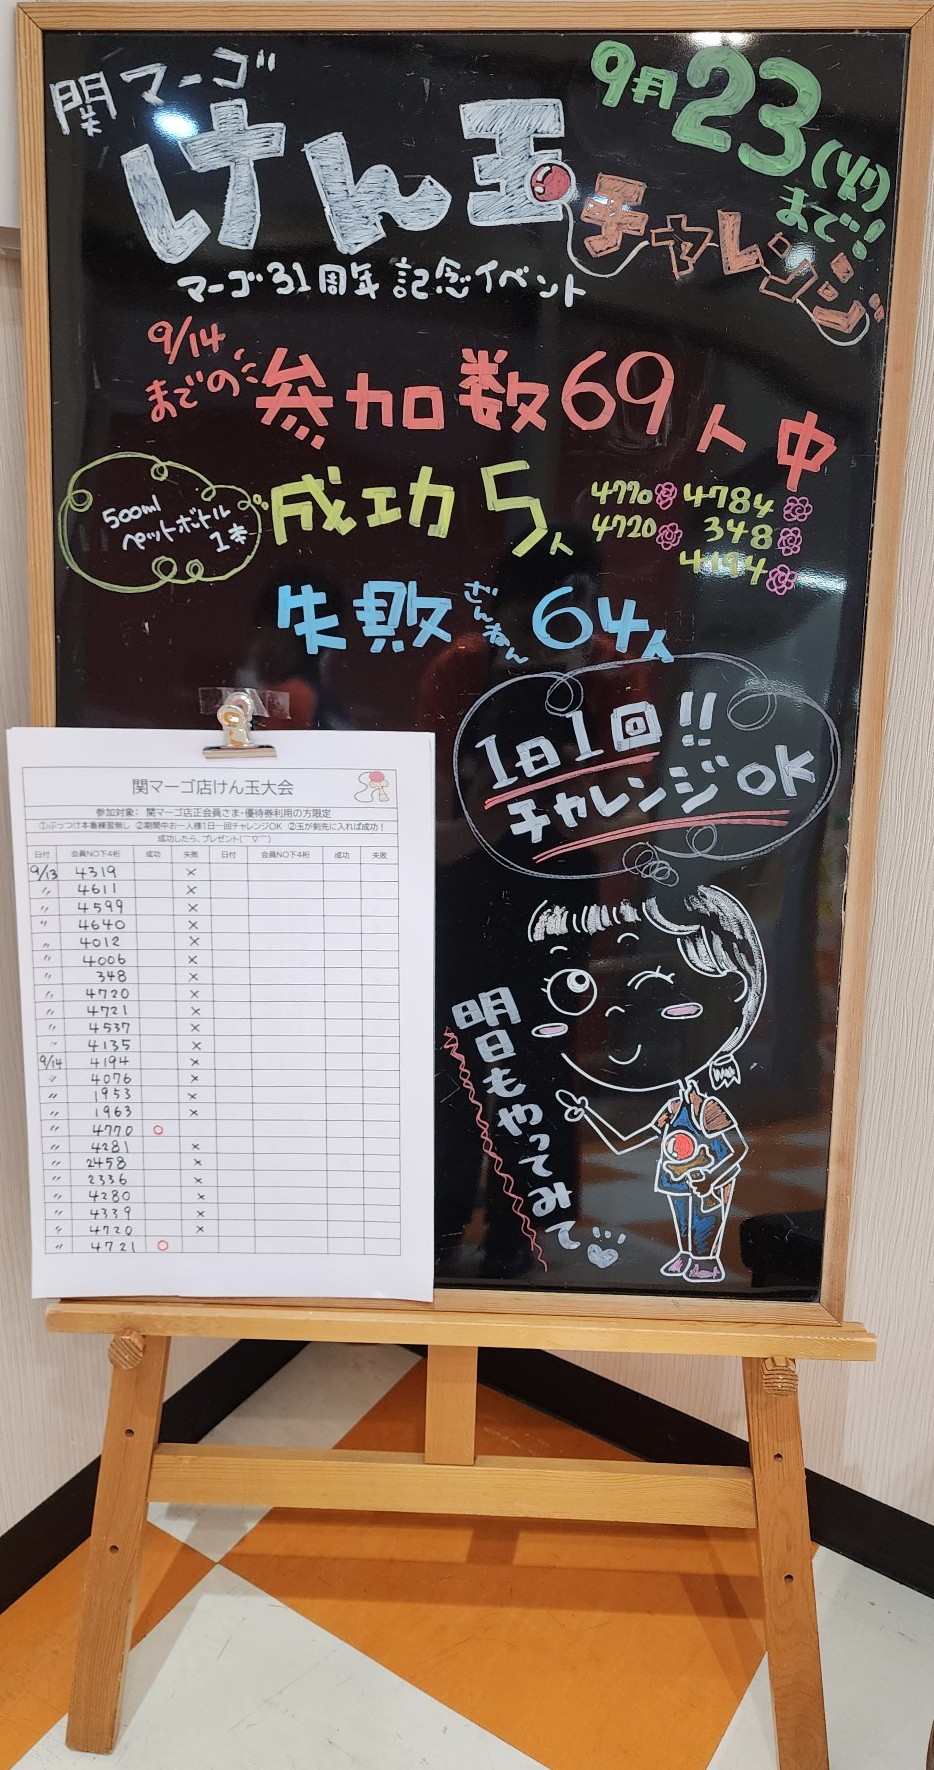 関マーゴ
けん玉チャレンジ
9月23(火)まで!
マーゴ31周年記念イベント
9/14までの参加数69人中
500ml
ペットボトル
1本
成功5人
4770 4784
4720 348
4194
失敗ざんねん64人
1日1回!!
チャレンジOK
明日もやってみて
関マーゴ店けん玉大会
参加対象: 関マーゴ店正会員さま・優待券利用の方限定
①ぶっつけ本番練習無し ②期間中お一人様1日一回チャレンジOK ②玉が剣先に入れば成功!
成功したら、プレゼント(⌒▽⌒)
日付 会員NO下4桁 成功 失敗 日付 会員NO下4桁 成功 失敗
9/13 4319 ×
〃 4611 ×
〃 4599 ×
〃 4640 ×
〃 4012 ×
〃 4006 ×
〃 348 ×
〃 4720 ×
〃 4721 ×
〃 4537 ×
〃 4135 ×
9/14 4194 ×
〃 4076 ×
〃 1953 ×
〃 1963 ×
〃 4770 ○
〃 4281 ×
〃 2458 ×
〃 2336 ×
〃 4280 ×
〃 4339 ×
〃 4720 ×
〃 4721 ○